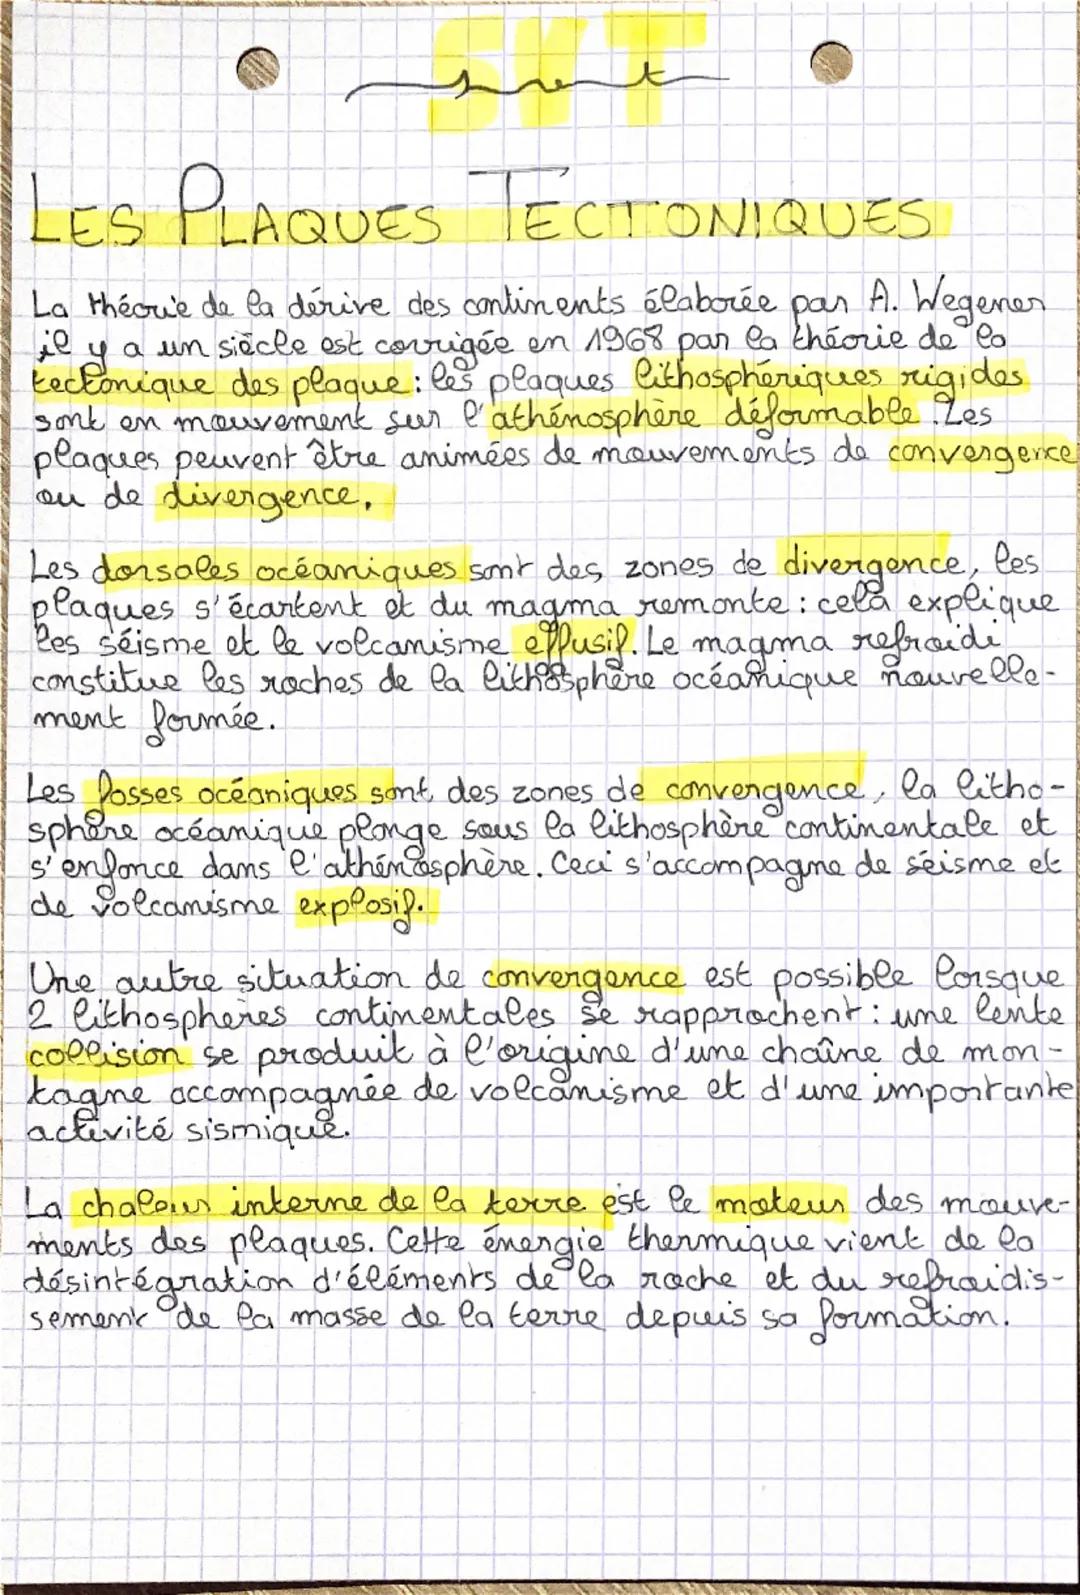 SVT
LES PLAQUES TECTONIQUES
La théorie de la dérive des continents élaborée par A. Wegener
il y a un siècle est corrigée en 1968 par la théorie de la
tectonique des plaque : les plaques lithosphériques rigides
sont en mouvement sur l'athénosphère déformable. Les
plaques peuvent être animées de mouvements de convergence
ou de divergence.
Les dorsales océaniques sont des zones de divergence, les
plaques s'écartent et du magma remonte : cela explique
les séisme et le volcanisme effusif. Le magma refroidi
constitue les roches de la lithosphère océanique nouvelle-
ment formée.
Les fosses océaniques sont des zones de convergence, la litho-
sphère océanique plonge sous la lithosphère continentale et
s'enfonce dans l'athénosphère. Ceci s'accompagne de séisme et
de volcanisme explosif.
Une autre situation de convergence est possible lorsque
2 lithosphères continentales se rapprochent : une lente
collision se produit à l'origine d'une chaîne de mon-
tagne accompagnée de volcanisme et d'une importante
activité sismique.
La chaleur interne de la terre est le moteur des mouve-
ments des plaques. Cette énergie thermique vient de la
désintégration d'éléments de la roche et du refroidis-
sement de la masse de la terre depuis sa formation.